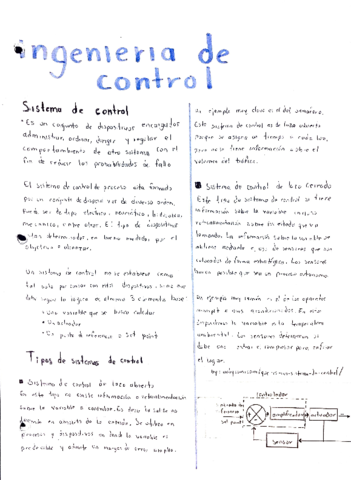 ingenieria de
control
Sistema de control
• Es un conjunto de dispositivos encargados
administrar, ordenar, dirigir y regular el
comportamiento de otro sistema con el
fin de reducir las probabilidades de fallo
El sistema de control de proceso esta formado
por un conjunto de dispositivos de diverso orden.
Puede ser de tipo electrico, neumático, hidraulico,
mecanico, entre otros. El tipo de dispositivo
esta determinado, en buena medida por el
objetivo a alcanzar.
Un sistema de control no se establece como
tal solo por contar con estos dispositivos, sino que
debe seguir la logica al menos 3 elementos base:
• Una variable que se busca controlar
• Un actuador
• Un punto de referencia o set point
Tipos de sistemas de control
Sistema de control de lazo abierto
En este tipo no existe información o retroalimentación
sobre la variable a controlar. Es decir la salida no
depende en de la entrada. Se utiliza en
procesos y dispositivos en donde la variable es
predecible y admite un margen de error amplio.
Un ejemplo muy claro es el del semáforo.
Este sistema de control es de lazo abierto
porque se asigna un tiempo a cada luz,
pero no se tiene información sobre el
volumen del tráfico.
Sistema de control de lazo cerrado
Este tipo de sistema de control se tiene
información sobre la variable, incluso
retroalimentación sobre los estados que va
tomando. La información sobre la variable se
obtiene mediante el uso de sensores que son
colocados de forma estratégica. Los sensores
hacen posible que sea un proceso autonomo
Un ejemplo muy común es el de los aparatos
de aires acondicionados. En este
la variable es la temperatura
ambiental. Los sensores determinan si
debe el compresor para enfriar
el lugar.
controlador
amplificador
actuador
set point
sensor